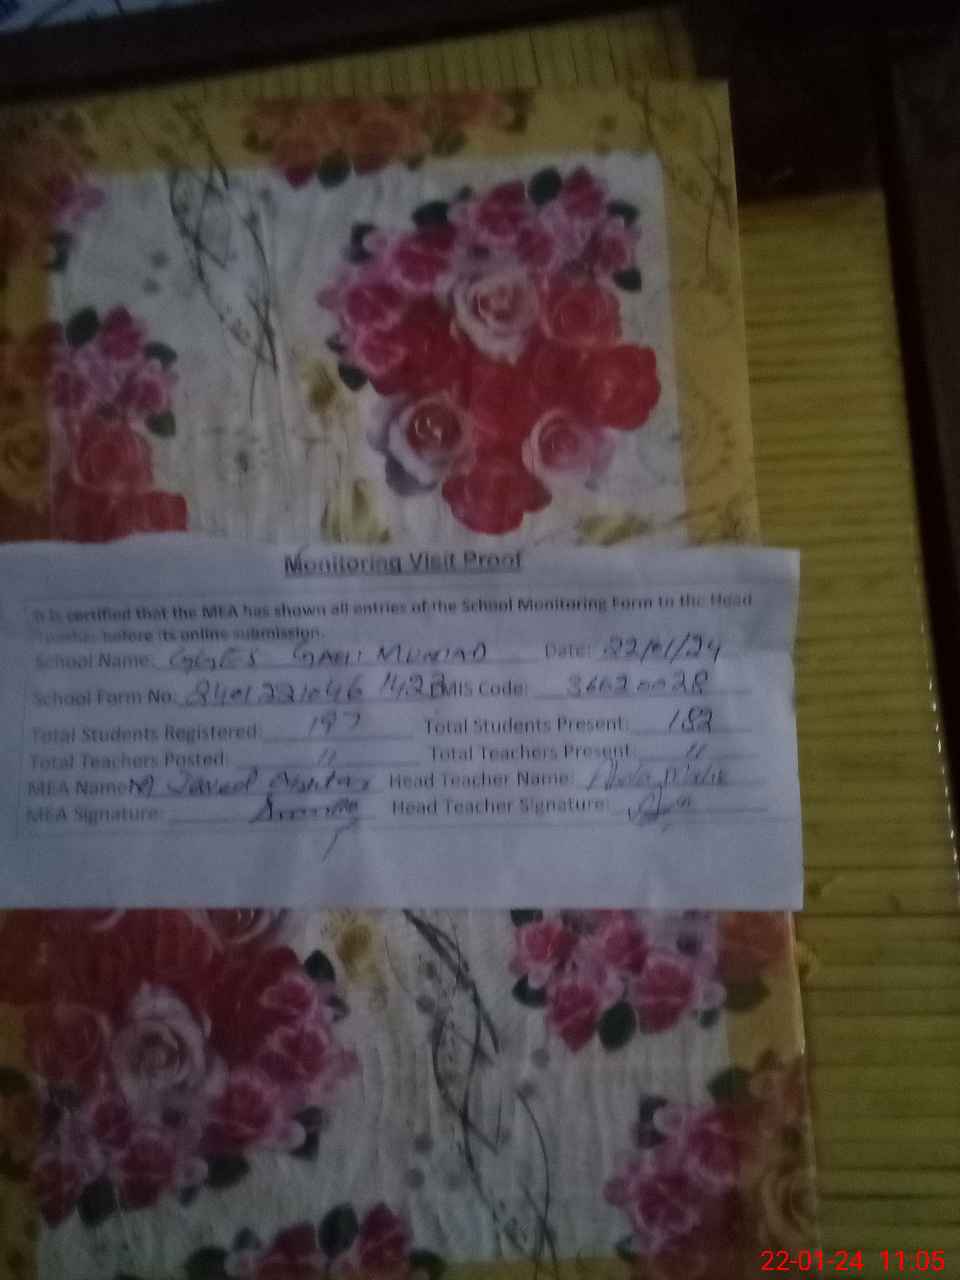 Monitoring Visit Proof
It is certified that the MEA has shown all entries of the School Monitoring Form to the Head
Teacher before its online submission.
School Name: Date: 22/01/24
School Form No: EMIS Code: 36620028
Total Students Registered: 197 Total Students Present: 182
Total Teachers Posted: 11 Total Teachers Present: 11
MEA Name: M Javeed Head Teacher Name:
MEA Signature: Head Teacher Signature:
22-01-24 11:05